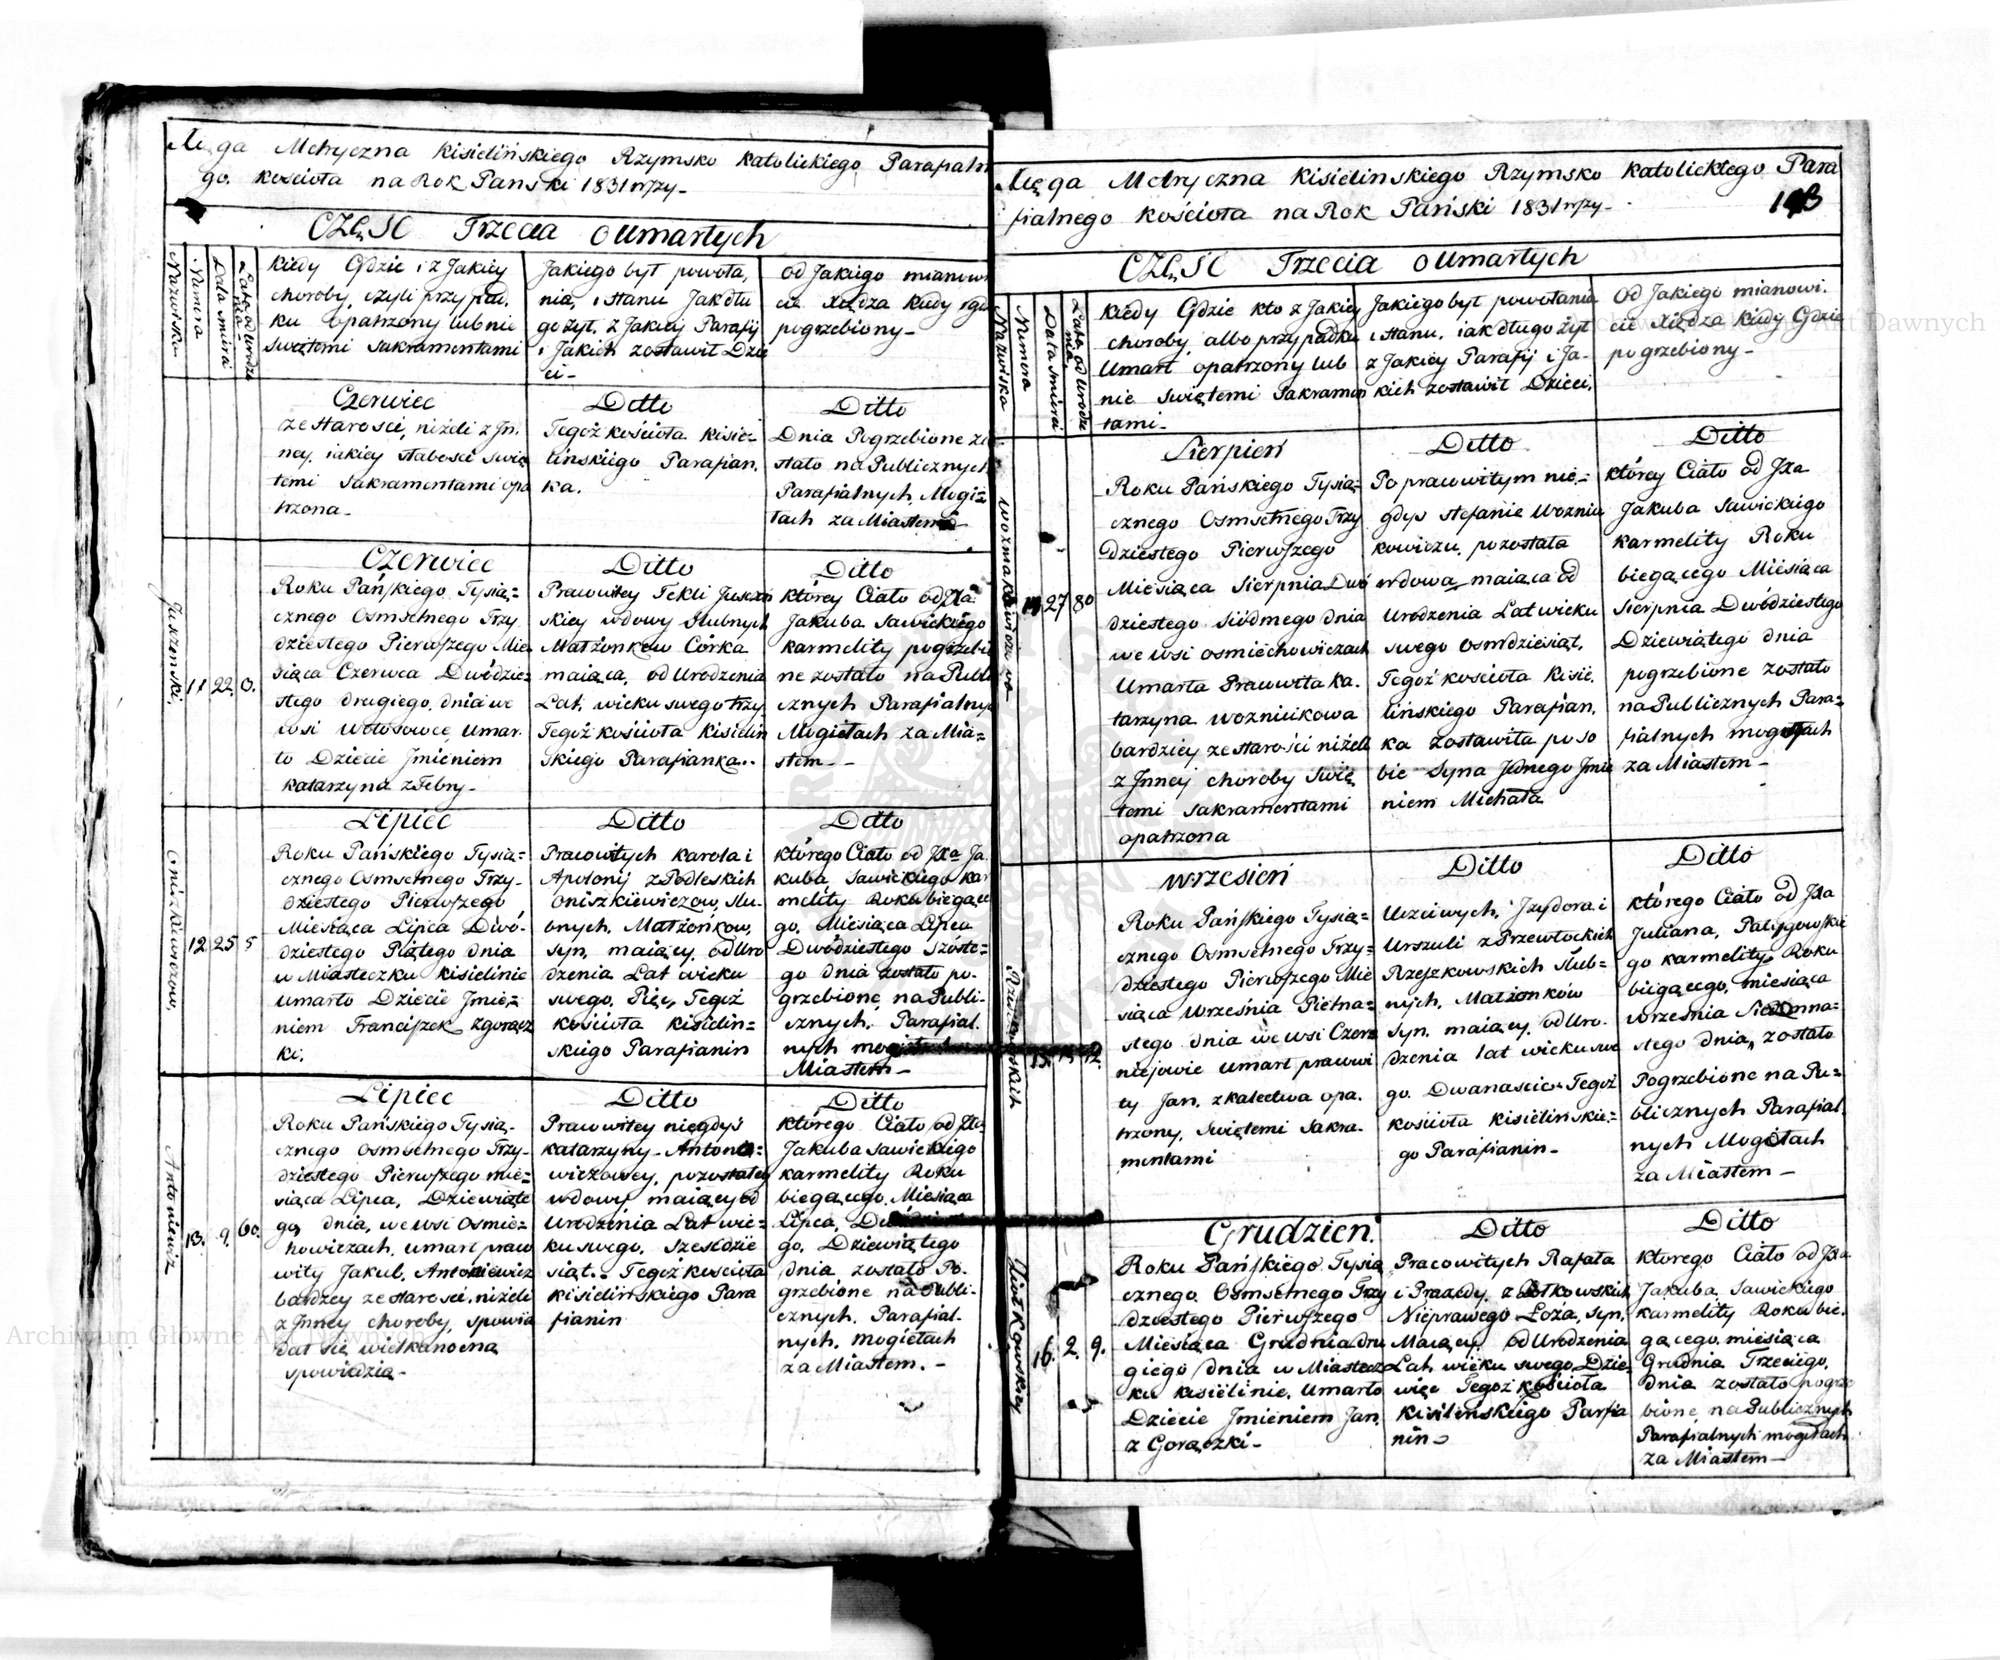 Xięga Metryczna Kisielińskiego Rzymsko Katolickiego Parafialn
go. kościoła na Rok Panski 1831wszy-
CZĘSC Trzecia o Umarłych
Nazwiska
Numera
Data śmierci
Lata od Urodzenia
kiedy Gdzie i z Jakiey
choroby, czyli przypad.
ku opatrzony lub nie
swiętemi sakramentami
Jakiego był powoła,
nia, i stanu Jak dłu
go żył. z Jakiey Parafij
i Jakich zostawił Dzie
ci-
od Jakiego mianowi
cie xiędza kiedy i gdzie
pogrzebiony-
Czerwiec
ze starosci, niżeli z Jn.
ney. iakiey słabosci swię
temi sakramentami opa
trzona-
Ditto
Tegoż kościoła kisie=
lińskiego Parafian.
ka.
Ditto
Dnia Pogrzebione zo
stało na Publicznych
Parafialnych Mogi=
łach za Miastem
Juszenski.
11
22
3.
Czerwiec
Roku Pańskiego Tysią=
cznego Osmsetnego Trzy
dziestego Pierwszego Mie
siąca Czerwca Dwódzie=
stego drugiego. dnia we
wsi Wołosowce Umar.
ło Dziecie Jmieniem
katarzyna z Febry-
Ditto
Prawowitey Tekli Juszen
skiey wdowy slubnych
Małżonkow Córka
maiąca, od Urodzenia
Lat. wieku swego trzy
Tegoż kościoła Kisielin
skiego Parafianka..
Ditto
którey Ciało od Jxa
Jakuba Sawickiego
karmelity pogrzebio
ne zostało na Publi
cznych Parafialny
Mogiełach za Mia=
stem--
Oniszkiewiczow.
12
25
5
Lipiec
Roku Pańskiego Tysią=
cznego Osmsetnego Trzy-
dziestego Pierwszego
Miesiąca Lipca Dwó-
dziestego Piątego dnia
w Miasteczku Kisielinie
umarło Dziecie Jmie=
niem Franciszek zgorącz
ki.
Ditto
Pracowitych karola i
Apolonij z Podleskich
Oniszkiewiczow, slu-
bnych. Małżonkow,
syn, maiący. od Uro
dzenia Lat wieku
swego. Pięć, Tegoż
kościoła kisielin=
skiego Parafianin
Ditto
którego Ciało od Jxa Ja
kuba Sawickiego kar
melity Roku biegące
go. Miesiąca Lipca
Dwódziestego Szóste=
go dnia zostało po-
grzebione na Publi-
cznych. Parafial.
nych
Miastem-
Antoniewicz
13.
9.
60.
Lipiec
Roku Pańskiego Tysią-
cznego Osmsetnego Trzy-
dziestego Pierwszego mie=
siąca Lipca, Dziewiąte
go, dnia, we wsi Osmie=
howiczach, umarł praw
wity Jakub, Antoniewicz
bardzey ze starosci. niżeli
z Jnney choroby, spowia
dał się wielkanocną
spowiedzią-
Ditto
Prawowitey niegdyś
katarzyny. Antono=
wiczowey, pozostałey
wdowy maiący od
Urodzenia Lat wie=
ku swego, szesćdzie
siąt.- Tegoż kościoła
kisielińskiego Para
fianin
Ditto
którego Ciało od Jxa
Jakuba Sawickiego
karmelity Roku
biegącego Miesiąca
Lipca,
go. Dziewiątego
dnia zostało Po-
grzebione na Publi-
cznych. Parafial-
nych. mogiełach
za Miastem.-
Xięga Metryczna Kisielinskiego Rzymsko Katolickiego Para
fialnego kościoła na Rok Pański 1831wszy-
CZĘSC Trzecia o Umarłych
Nazwiska
Numera
Data śmierci
Lata od Urodzenia
kiedy Gdzie kto z Jakiey
choroby albo przypadku
Umarł opatrzony lub
nie swiętemi Sakramen
tami-
Jakiego był powołania
i stanu, iak długo żył
z Jakiey Parafij i Ja-
kich zostawił Dzieci.
Od Jakiego mianowi.
cie xiędza kiedy Gdzie
pogrzebiony-
27
80
Sierpień
Roku Pańskiego Tysią=
cznego Osmsetnego Trzy
dziestego Pierwszego
Miesiąca Sierpnia Dwó
dziestego siódmego dnia
we wsi osmiechowiczach
Umarła Prawowita ka.
tarzyna woznicikowa
bardziey ze starości niżeli
z Jnney choroby swię
temi sakramentami
opatrzona
Ditto
Po pracowitym nie=
gdys stefanie Wozniu
kowiczu. pozostała
wdowa maiąca od
Urodzenia Lat wieku
swego osmdziesiąt.
Tegoż kościoła Kisie.
lińskiego Parafian.
ka zostawiła po so
bie Syna Jednego Jmie
niem Michała
Ditto
którey Ciało od Jxa
Jakuba Sawickiego
karmelity Roku
biegącego Miesiąca
Sierpnia Dwódziestego
Dziewiątego dnia
pogrzebione zostało
na Publicznych Para=
fialnych mogiełach
za Miastem-
15.
12.
wrzesień
Roku Pańskiego Tysią=
cznego Osmsetnego Trzy-
dziestego Pierwszego Mie
siąca Września Piętna=
stego dnia we wsi Czer
niejowie umarł prawowi
ty Jan. z kalectwa opa.
trzony, Swiętemi Sakra-
mentami
Ditto
Uczciwych, Jzydora i
Urszuli z Przewłockich
Rzeszkowskich slub=
nych. Małżonków
syn. maiący. od Uro.
dzenia lat wieku swe
go. Dwanascie. Tegoż
kościoła kisielinskie=
go Parafianin-
Ditto
którego Ciało od Jxa
Juliana,
go karmelity Roku
biegącego, miesiąca
września Siedmna=
stego dnia, zostało
Pogrzebione na Pu=
blicznych Parafial
nych Mogiłach
za Miastem-
Ziółkowskiy
16.
2.
9.
Grudzien.
Roku Pańskiego Tysią
cznego. Osmsetnego Trzy
dziestego Pierwszego
Miesiąca Grudnia Dru
giego dnia w Miastecz
ku kisielinie. Umarło
Dziecie Jmieniem Jan.
z Gorączki-
Ditto
Pracowitych Rafała
i Praxedy.
Nieprawego Łoża, syn.
Maiący. od Urodzenia
Lat, wieku swego, Dzie=
więc Tegoż kościoła
kisilinskiego Parfia
nin-
Ditto
ktorego Ciało od Jxa
Jakuba Sawickiego
karmelity Roku bie.
gącego. miesiąca
Grudnia Trzeciego.
dnia zostało pogrze
bione na Publicznych
Parafialnych mogiłach
za Miastem-
Archiwum Główne Akt Dawnych
Archiwum Główne Akt Dawnych